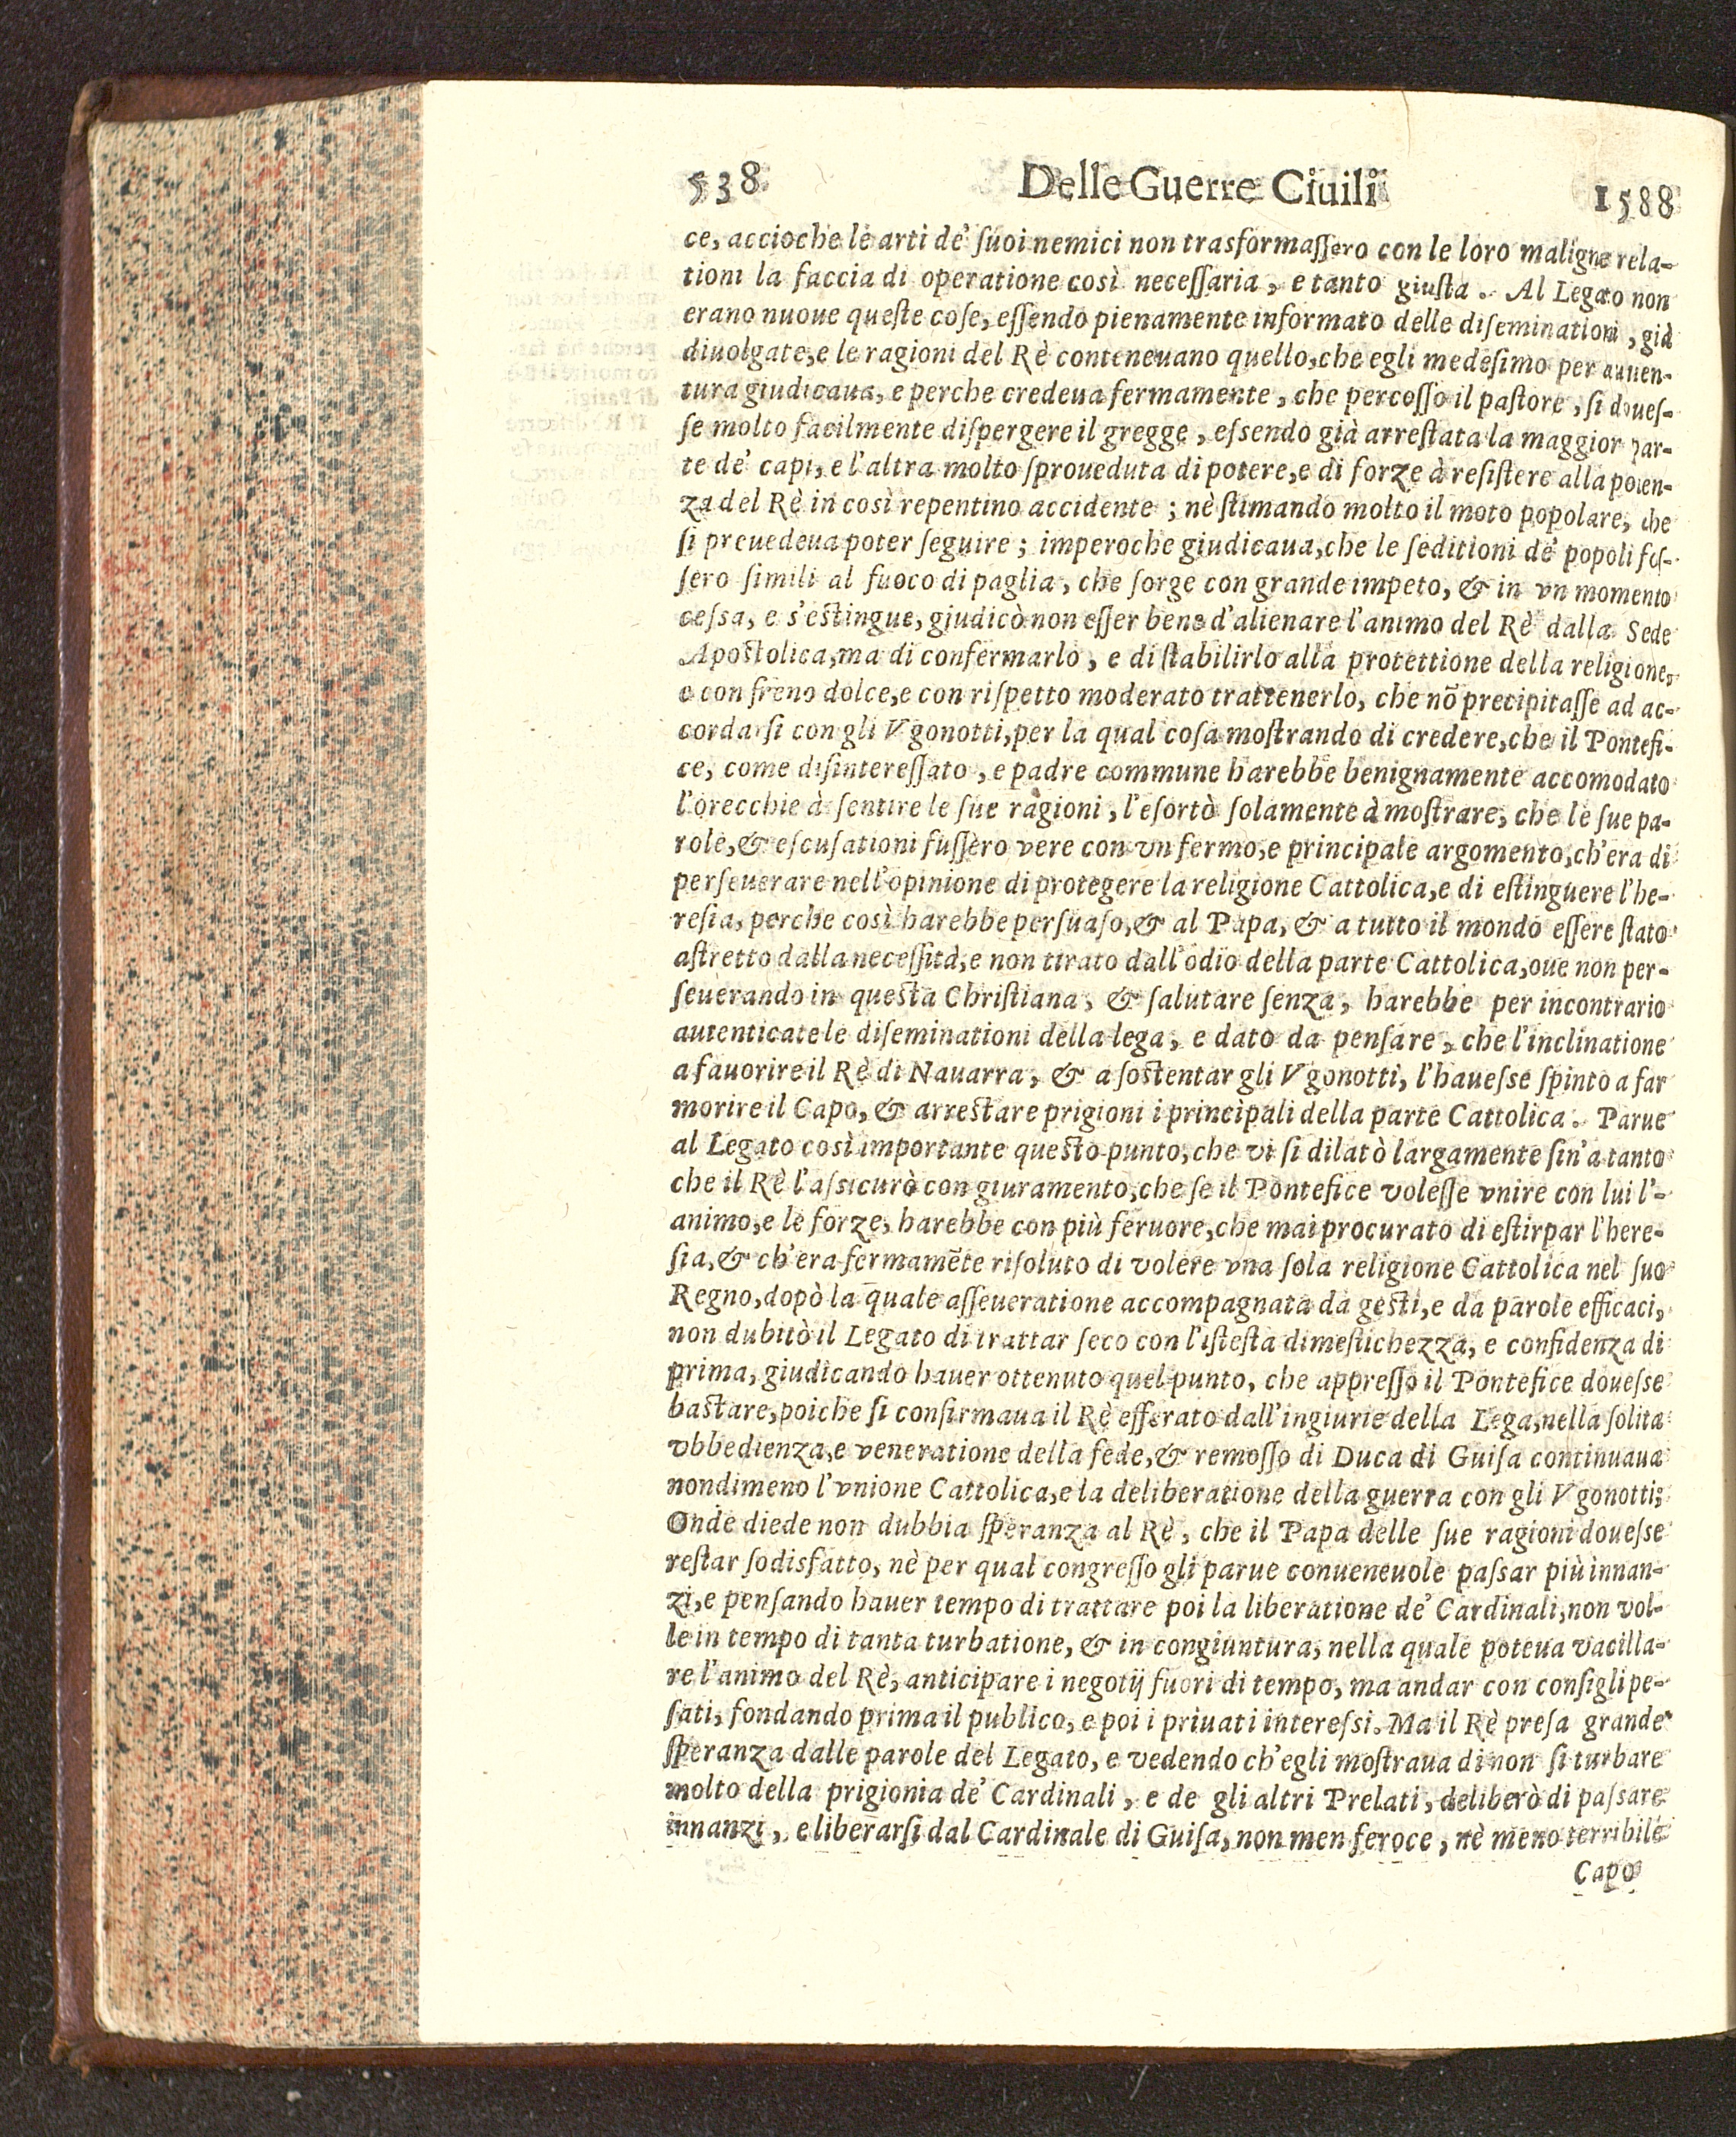 538 Delle Guerre Ciuili 1588
ce, accioche le arti de' ſuoi nemici non trasformaſſero con le loro maligne rela-
tioni la faccia di operatione così neceſſaria, e tanto giuſta. Al Legato non
erano nuoue queſte coſe, eſſendo pienamente informato delle diſeminationi, già
diuolgate, e le ragioni del Rè conteneuano quello, che egli medeſimo per auuen-
tura giudicaua, e perche credeua fermamente, che percoſſo il paſtore, ſi doueſ-
ſe molto facilmente diſpergere il gregge, eſsendo già arreſtata la maggior par-
te de' capi, e l'altra molto ſproueduta di potere, e di forze à reſiſtere alla poten-
za del Rè in così repentino accidente; nè ſtimando molto il moto popolare, che
ſi preuedeua poter ſeguire; imperoche giudicaua, che le ſeditioni de' popoli foſ-
ſero ſimili al fuoco di paglia, che ſorge con grande impeto, & in vn momento
ceſsa, e s'eſtingue, giudicò non eſſer bene d'alienare l'animo del Rè dalla Sede
Apoſtolica, ma di confermarlo, e di ſtabilirlo alla protettione della religione,
e con freno dolce, e con riſpetto moderato trattenerlo, che nõ precipitaſſe ad ac-
cordarſi con gli Vgonotti, per la qual coſa moſtrando di credere, che il Pontefi-
ce, come diſintereſſato, e padre commune harebbe benignamente accomodato
l'orecchie à ſentire le ſue ragioni, l'eſortò ſolamente à moſtrare, che le ſue pa-
role, & eſcuſationi fuſſero vere con vn fermo, e principale argomento, ch'era di
perſeuerare nell'opinione di protegere la religione Cattolica, e di eſtinguere l'he-
reſia, perche così harebbe perſuaſo, & al Papa, & a tutto il mondo eſſere ſtato
aſtretto dalla neceſſità, e non tirato dall'odio della parte Cattolica, oue non per-
ſeuerando in queſta Chriſtiana, & ſalutare ſenza, harebbe per incontrario
autenticate le diſeminationi della lega, e dato da penſare, che l'inclinatione
a fauorire il Rè di Nauarra, & a ſoſtentar gli Vgonotti, l'haueſse ſpinto a far
morire il Capo, & arreſtare prigioni i principali della parte Cattolica. Parue
al Legato così importante queſto punto, che vi ſi dilatò largamente ſin'a tanto
che il Rè l'aſsicurò con giuramento, che ſe il Pontefice voleſſe vnire con lui l'-
animo, e le forze, harebbe con più feruore, che mai procurato di eſtirpar l'here-
ſia, & ch'era fermamẽte riſoluto di volere vna ſola religione Cattolica nel ſuo
Regno, dopò la quale aſſeueratione accompagnata da geſti, e da parole efficaci,
non dubitò il Legato di trattar ſeco con l'iſteſta dimeſtichezza, e confidenza di
prima, giudicando hauer ottenuto quel punto, che appreſſo il Pontefice doueſse
baſtare, poiche ſi confirmaua il Rè efferato dall'ingiurie della Lega, nella ſolita
vbbedienza, e veneratione della fede, & remoſſo di Duca di Guiſa continuaua
nondimeno l'vnione Cattolica, e la deliberatione della guerra con gli Vgonotti;
Onde diede non dubbia ſperanza al Rè, che il Papa delle ſue ragioni doueſse
reſtar ſodisfatto, nè per qual congreſſo gli parue conueneuole paſsar più innan-
zi, e penſando hauer tempo di trattare poi la liberatione de' Cardinali, non vol-
le in tempo di tanta turbatione, & in congiuntura, nella quale poteua vacilla-
re l'animo del Rè, anticipare i negotij fuori di tempo, ma andar con conſigli pe-
ſati, fondando prima il publico, e poi i priuati intereſsi. Ma il Rè preſa grande
ſperanza dalle parole del Legato, e vedendo ch'egli moſtraua di non ſi turbare
molto della prigionia de' Cardinali, e de gli altri Prelati, deliberò di paſsare
innanzi, e liberarſi dal Cardinale di Guiſa, non men feroce, nè meno terribile
Capo